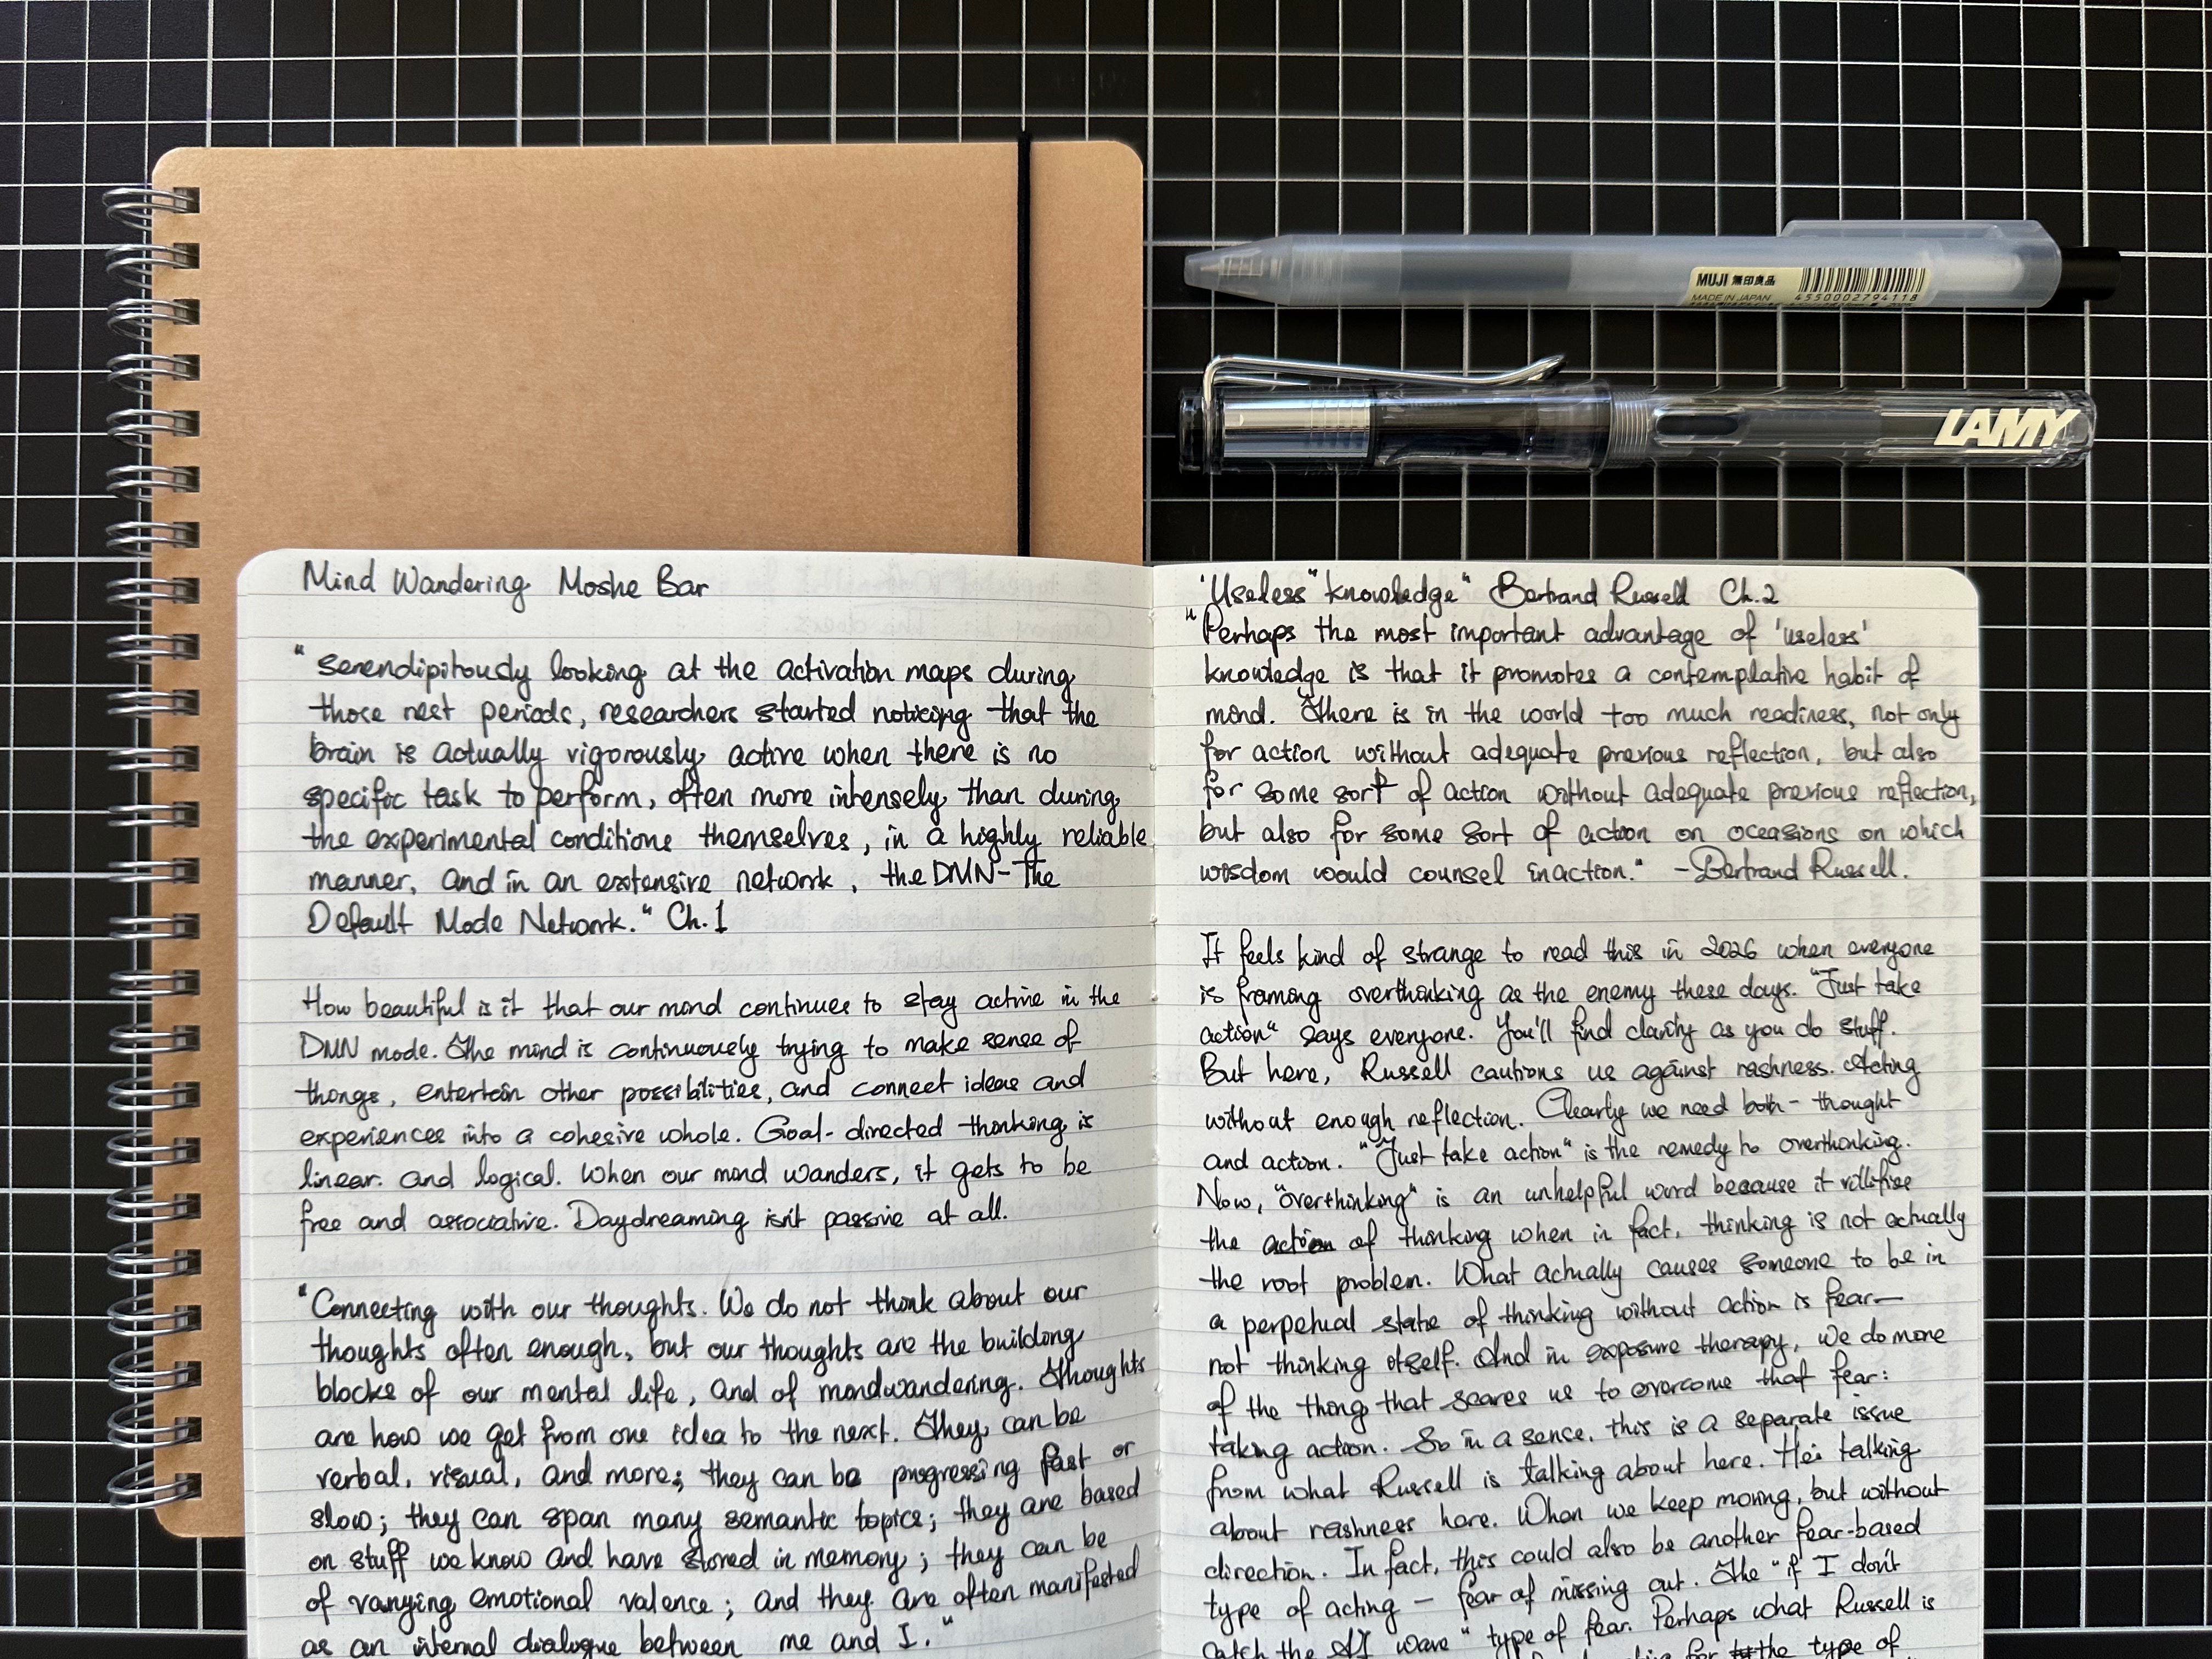 MUJI 無印良品
MADE IN JAPAN
4550002794118
LAMY
Mind Wandering Moshe Bar
"Serendipitously looking at the activation maps during
those rest periods, researchers started noticing that the
brain is actually vigorously active when there is no
specific task to perform, often more intensely than during
the experimental conditions themselves, in a highly reliable
manner, and in an extensive network, the DMN - The
Default Mode Network." Ch.1
How beautiful is it that our mind continues to stay active in the
DMN mode. The mind is continuously trying to make sense of
things, entertain other possibilities, and connect ideas and
experiences into a cohesive whole. Goal-directed thinking is
linear. and logical. When our mind wanders, it gets to be
free and associative. Daydreaming isn't passive at all.
"Connecting with our thoughts. We do not think about our
thoughts often enough, but our thoughts are the building
blocks of our mental life, and of mindwandering. Thoughts
are how we get from one idea to the next. They can be
verbal, visual, and more; they can be progressing fast or
slow; they can span many semantic topics; they are based
on stuff we know and have stored in memory; they can be
of varying emotional valence; and they are often manifested
as an internal dialogue between me and I."
'Useless" knowledge" Bertrand Russell Ch.2
"Perhaps the most important advantage of 'useless'
knowledge is that it promotes a contemplative habit of
mind. There is in the world too much readiness, not only
for action without adequate previous reflection, but also
for some sort of action without adequate previous reflection,
but also for some sort of action on occasions on which
wisdom would counsel inaction." -Bertrand Russell.
It feels kind of strange to read this in 2026 when everyone
is framing overthinking as the enemy these days. "Just take
action" says everyone. You'll find clarity as you do stuff.
But here, Russell cautions us against rashness. Acting
without enough reflection. Clearly we need both - thought
and action. "Just take action" is the remedy to overthinking.
Now, "overthinking" is an unhelpful word because it villifies
the action of thinking when in fact, thinking is not actually
the root problem. What actually causes someone to be in
a perpetual state of thinking without action is fear—
not thinking itself. And in exposure therapy, we do more
of the thing that scares us to overcome that fear:
taking action. So in a sense, this is a separate issue
from what Russell is talking about here. He's talking
about rashness here. When we keep moving, but without
direction. In fact, this could also be another fear-based
type of acting - fear of missing out. The "if I don't
catch the AI wave" type of fear. Perhaps what Russell is
for the type of